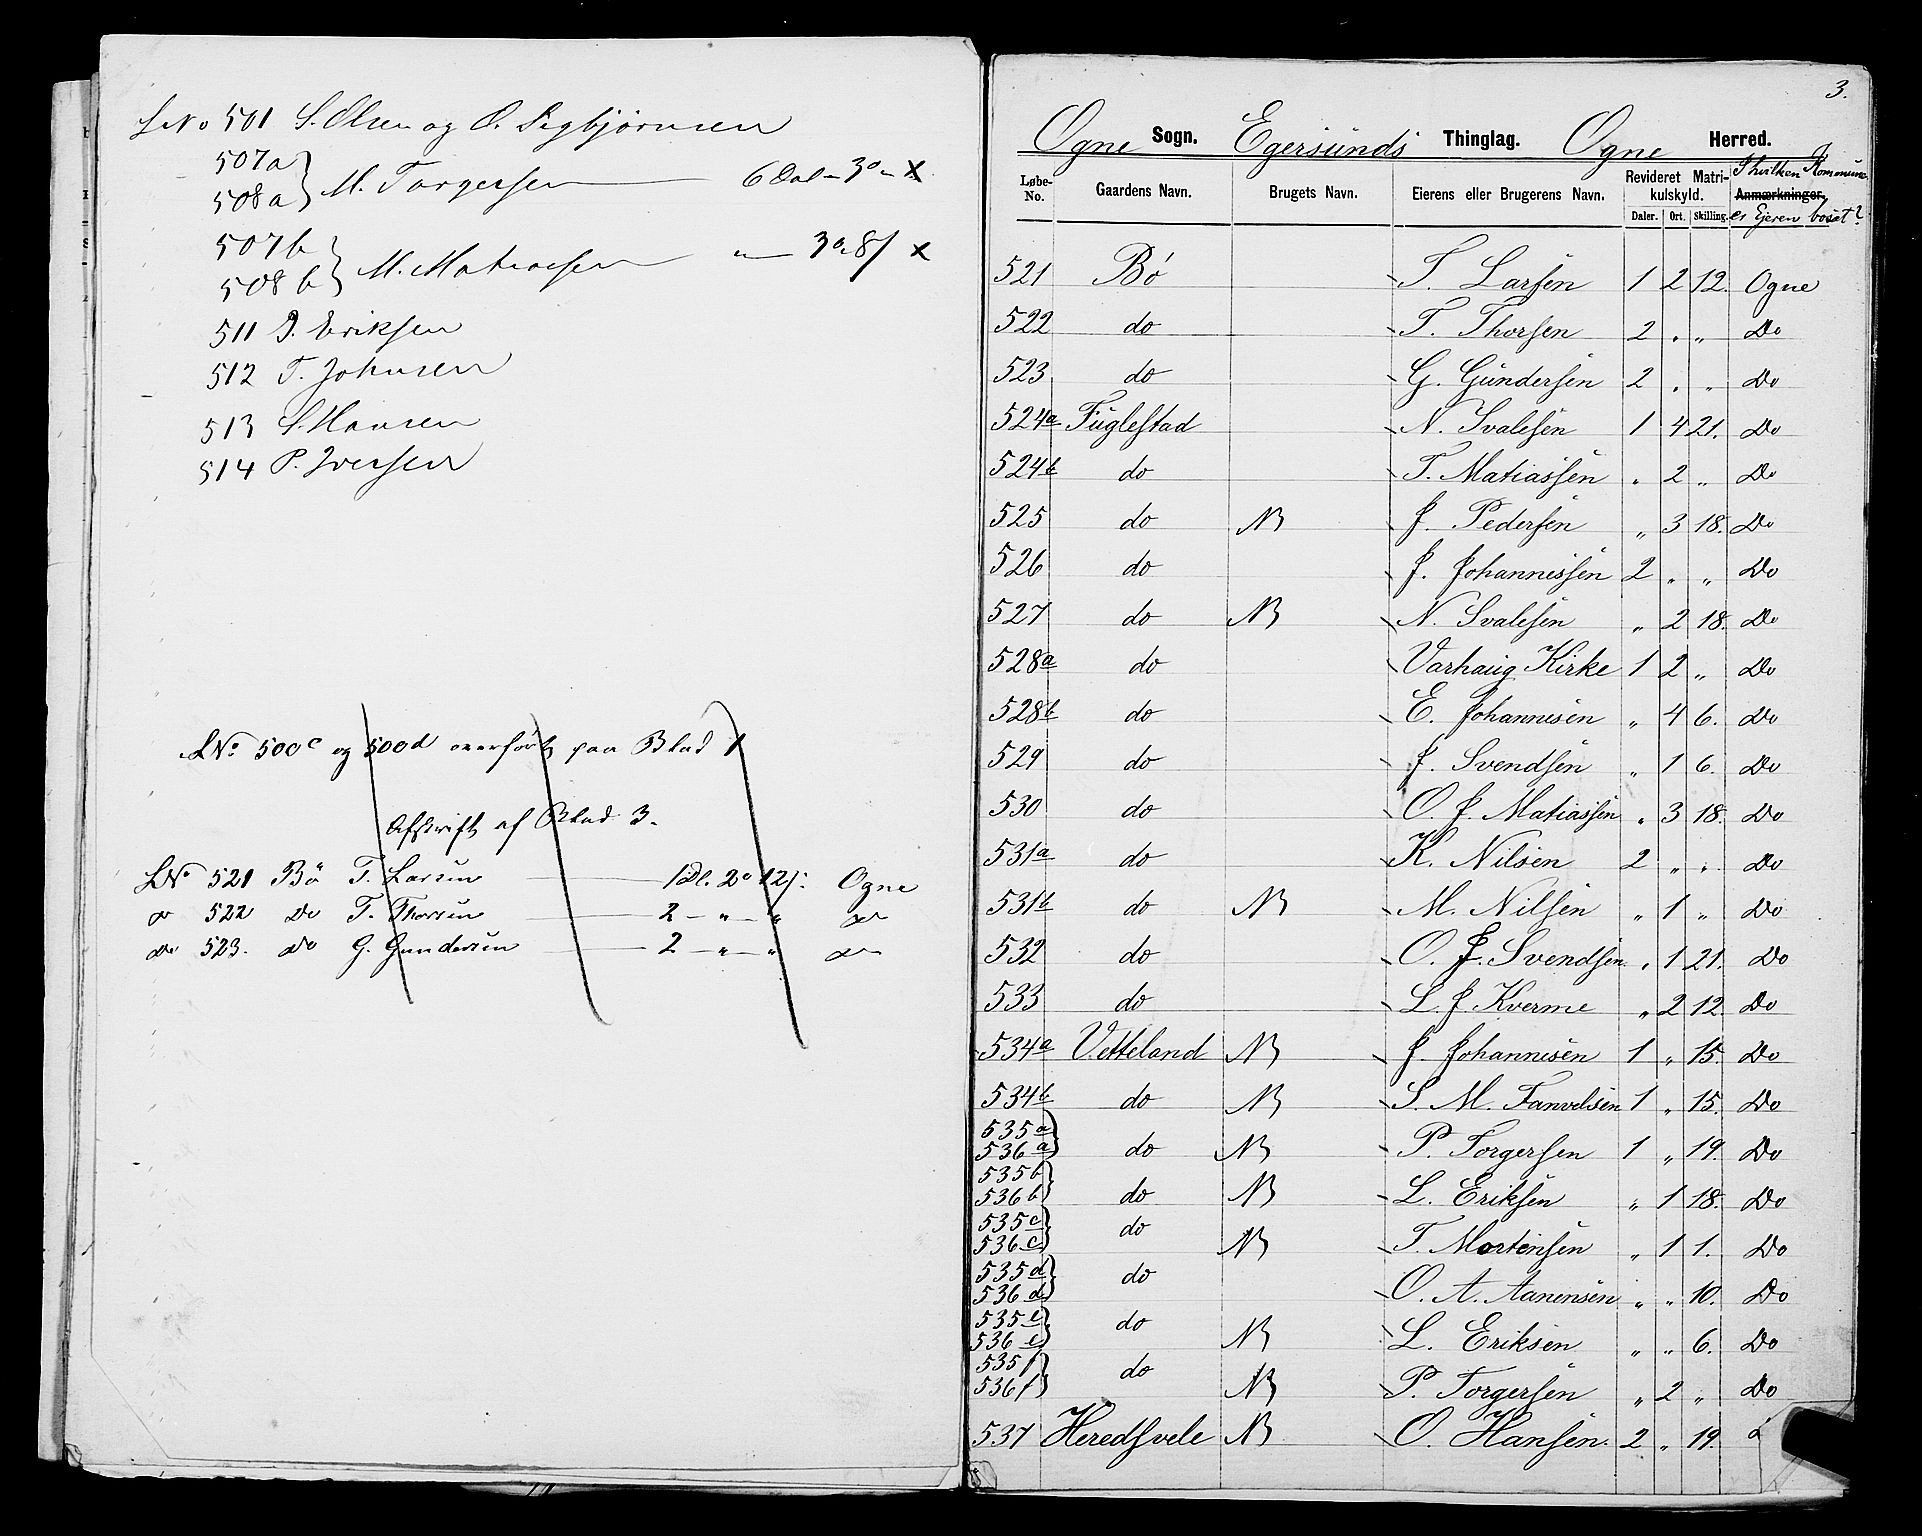 LNo 501 S. Olsen og O. Sigbjørnsen
507a
508a } M. Torgersen — 6 Dal - 3 o „ x
507b
508b } M. Matiassen „ — 3 o 8 s x
511 P. Eriksen
512 T. Johnsen
513 S. Hansen
514 P. Iversen
LNo 500c og 500d overført paa Blad 1
Afskrift af Blad 3.
LNo 521 Bö T. Larsen — 1 Dl. 2 o 12 s. Ogne
do 522 Do T. Thorsen — 2 - „ - „ do
Do 523. Do G. Gundersen — 2 - „ - „ do
3.
Ogne Sogn. Egersunds Thinglag. Ogne Herred.
Løbe-No. Gaardens Navn. Brugets Navn. Eierens eller Brugerens Navn. Revideret Matrikulskyld. Daler. Ort. Skilling. Anmærkninger. I hvilken Kommune er Ejeren bosat?
521 Bö T. Larsen 1 2 12. Ogne
522 do T. Thorsen 2 „ „ Do
523 do G. Gundersen 2 „ „ Do
524a Fuglestad N. Svalesen 1 4 21. Do
524b do T. Matiassen „ 2 „ Do
525 do NB J. Pedersen „ 3 18. Do
526 do J. Johannessen 2 „ „ Do
527 do NB N. Svalesen „ 2 18. Do
528a do Varhaug Kirke 1 2 „ Do
528b do E. Johannesen „ 4 6. Do
529 do J. Svendsen „ 1 6. Do
530 do O. J. Matiassen „ 3 18. Do
531a do K. Nilsen 2 „ „ Do
531b do NB M. Nilsen „ 1 „ Do
532 do O. J. Svendsen „ 1 21. Do
533 do L. J. Kverme „ 2 12. Do
534a Vetteland NB J. Johannesen 1 „ 15. Do
534b do NB S. M. Tanvelsen 1 „ 15. Do
535a
536a } do NB P. Torgersen 1 „ 19. Do
535b
536b } do NB L. Eriksen „ 1 18. Do
535c
536c } do NB T. Mortensen „ 1 1. Do
535d
536d } do O. A. Aanensen „ „ 10. Do
535e
536e } do NB L. Eriksen „ „ 6. Do
535f
536f } do NB P. Torgersen „ 2 „ Do
537 Heredsvele NB O. Hansen. 2 „ 19.